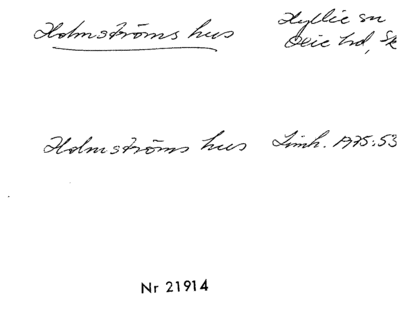 Holmströms hus
Hyllie sn
Oxie hd, Sk
Holmströms hus Limh. 1975:53
Nr 21914